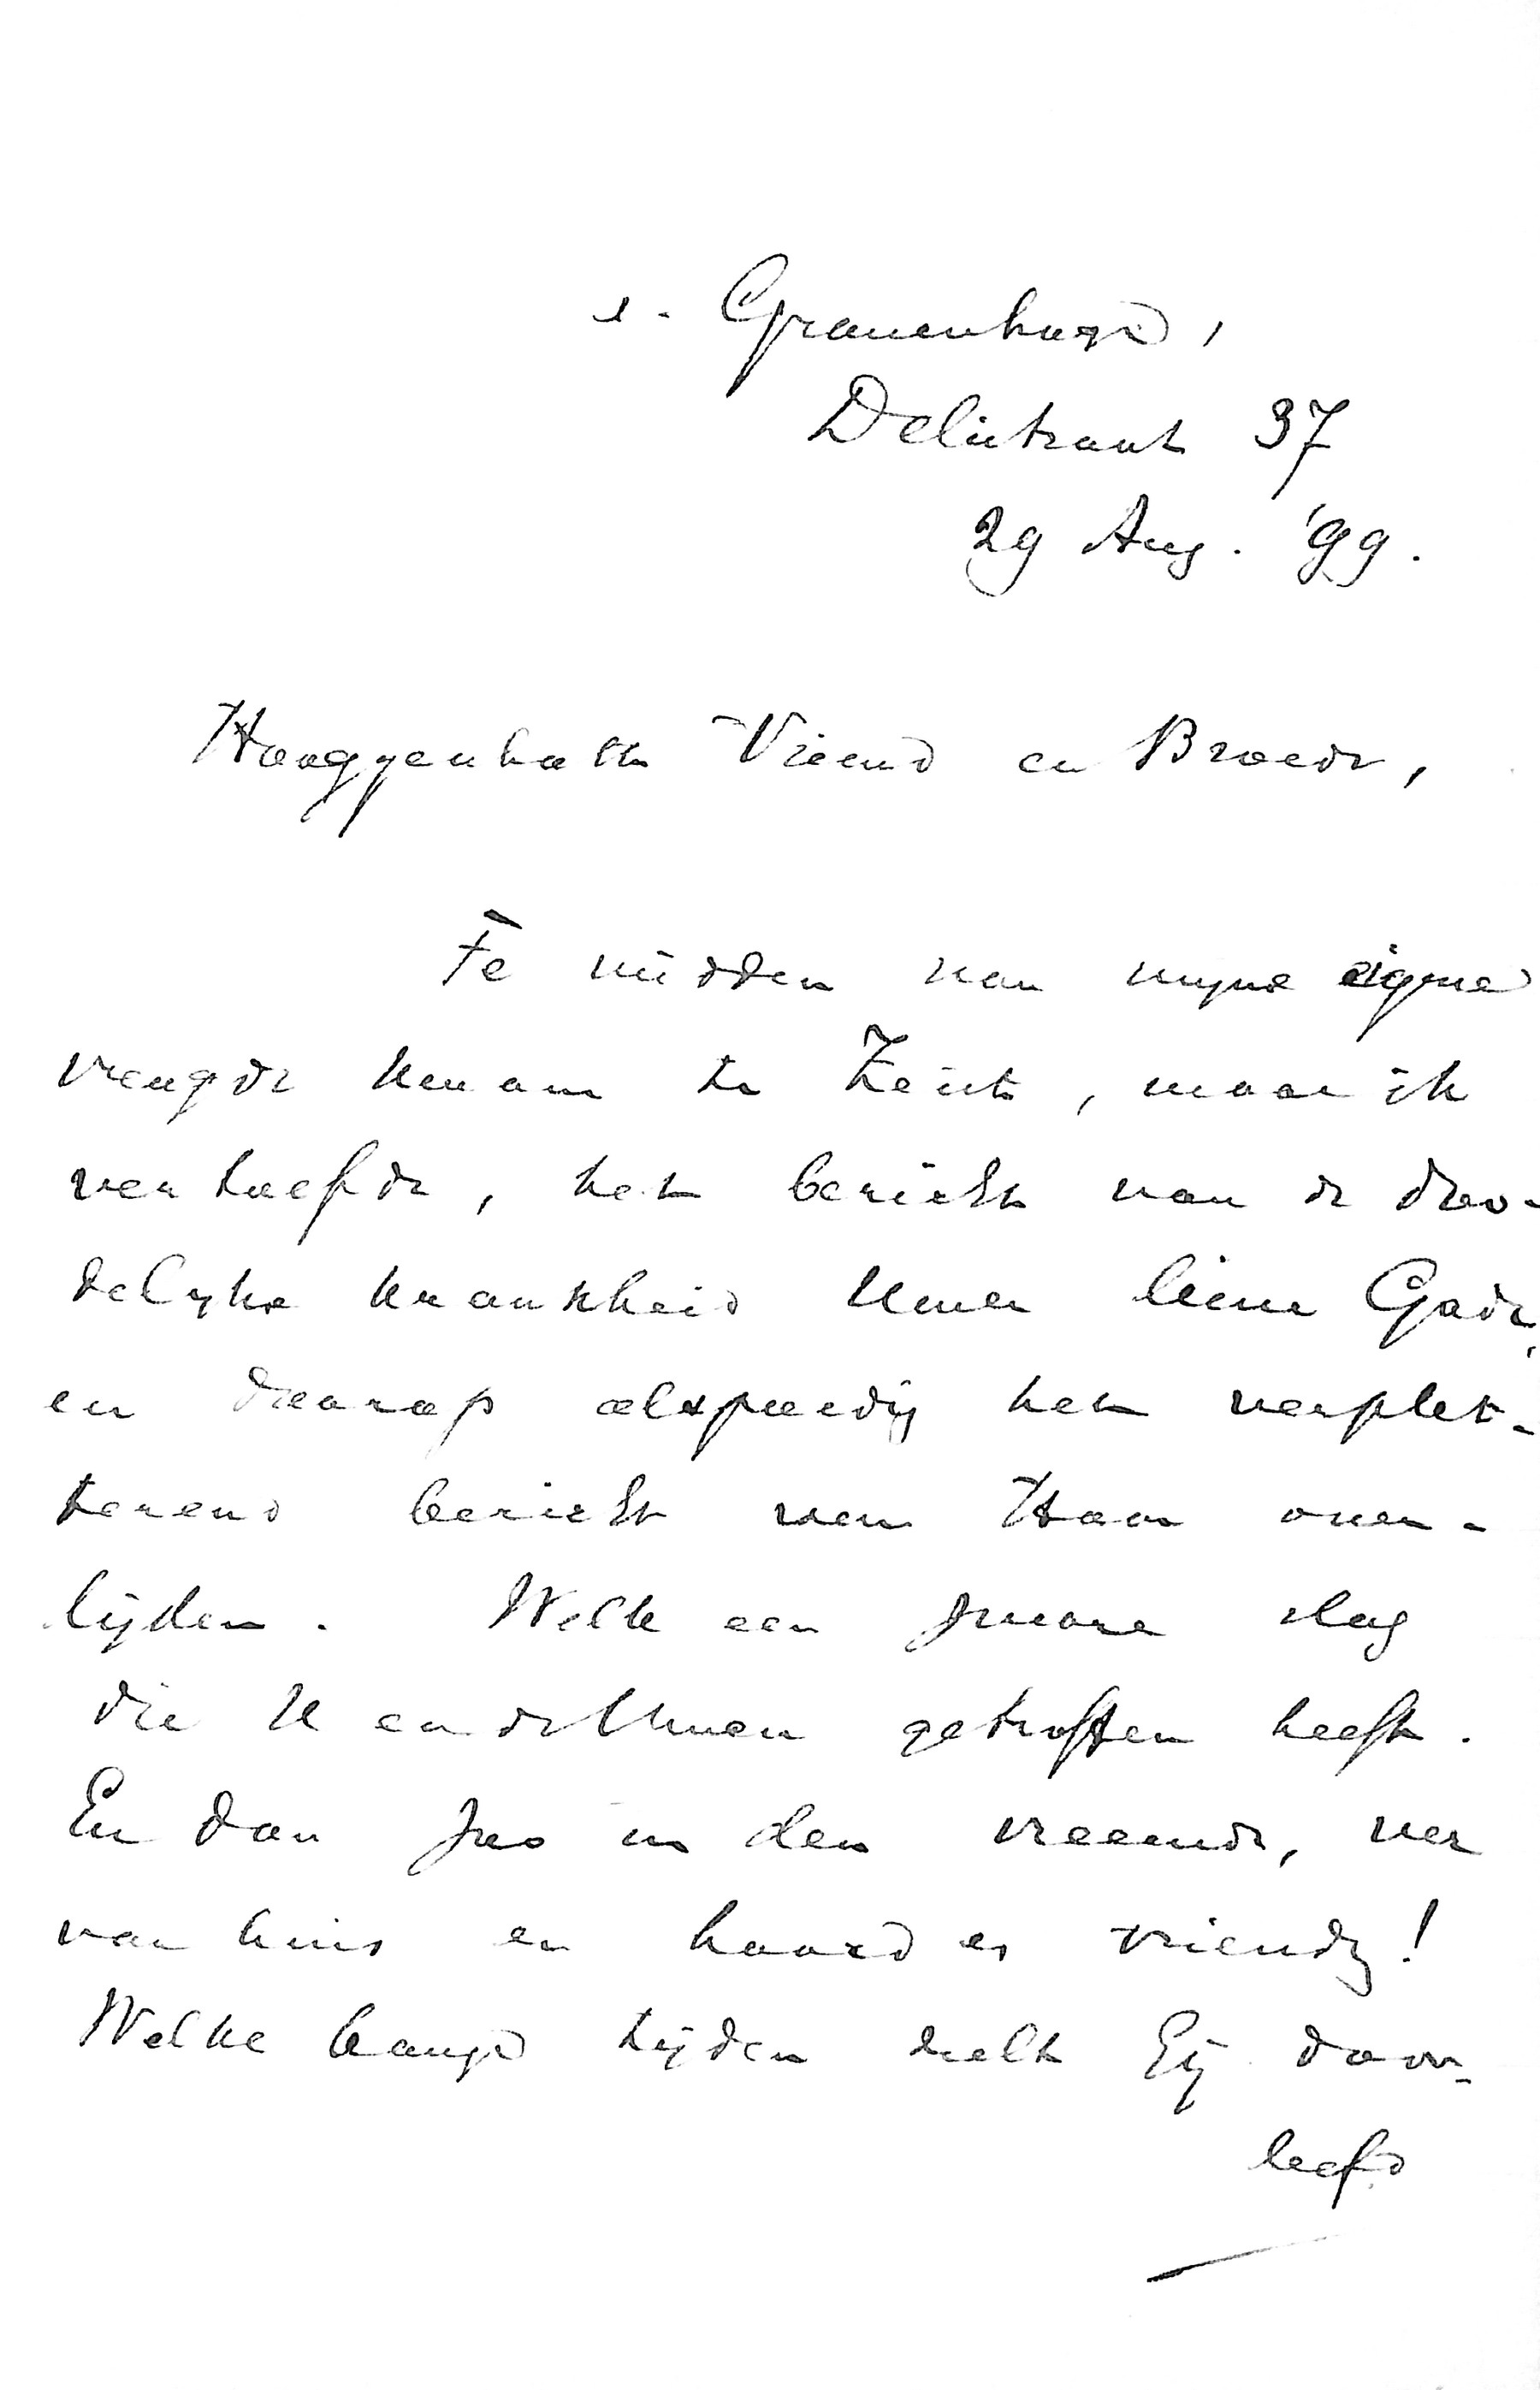 s. Gravenhage,
Delistraat 37
29 Aug. '99.
Hooggeachte Vriend en Broeder,
Te midden van mijne eigne
vreugde kwam te Zeist, waar ik
vertoefde, het bericht van de doo-
delijke krankheid Uwer lieve Gade,
en daarop alspoedig het verplet-
terend bericht van Haar over-
lijden. Welk een zware slag
die U en de Uwen getroffen heeft.
En dan zoo in den vreemde, ver
van huis en haard en vrienden!
Welke bange tijden hebt Gij door-
leefd